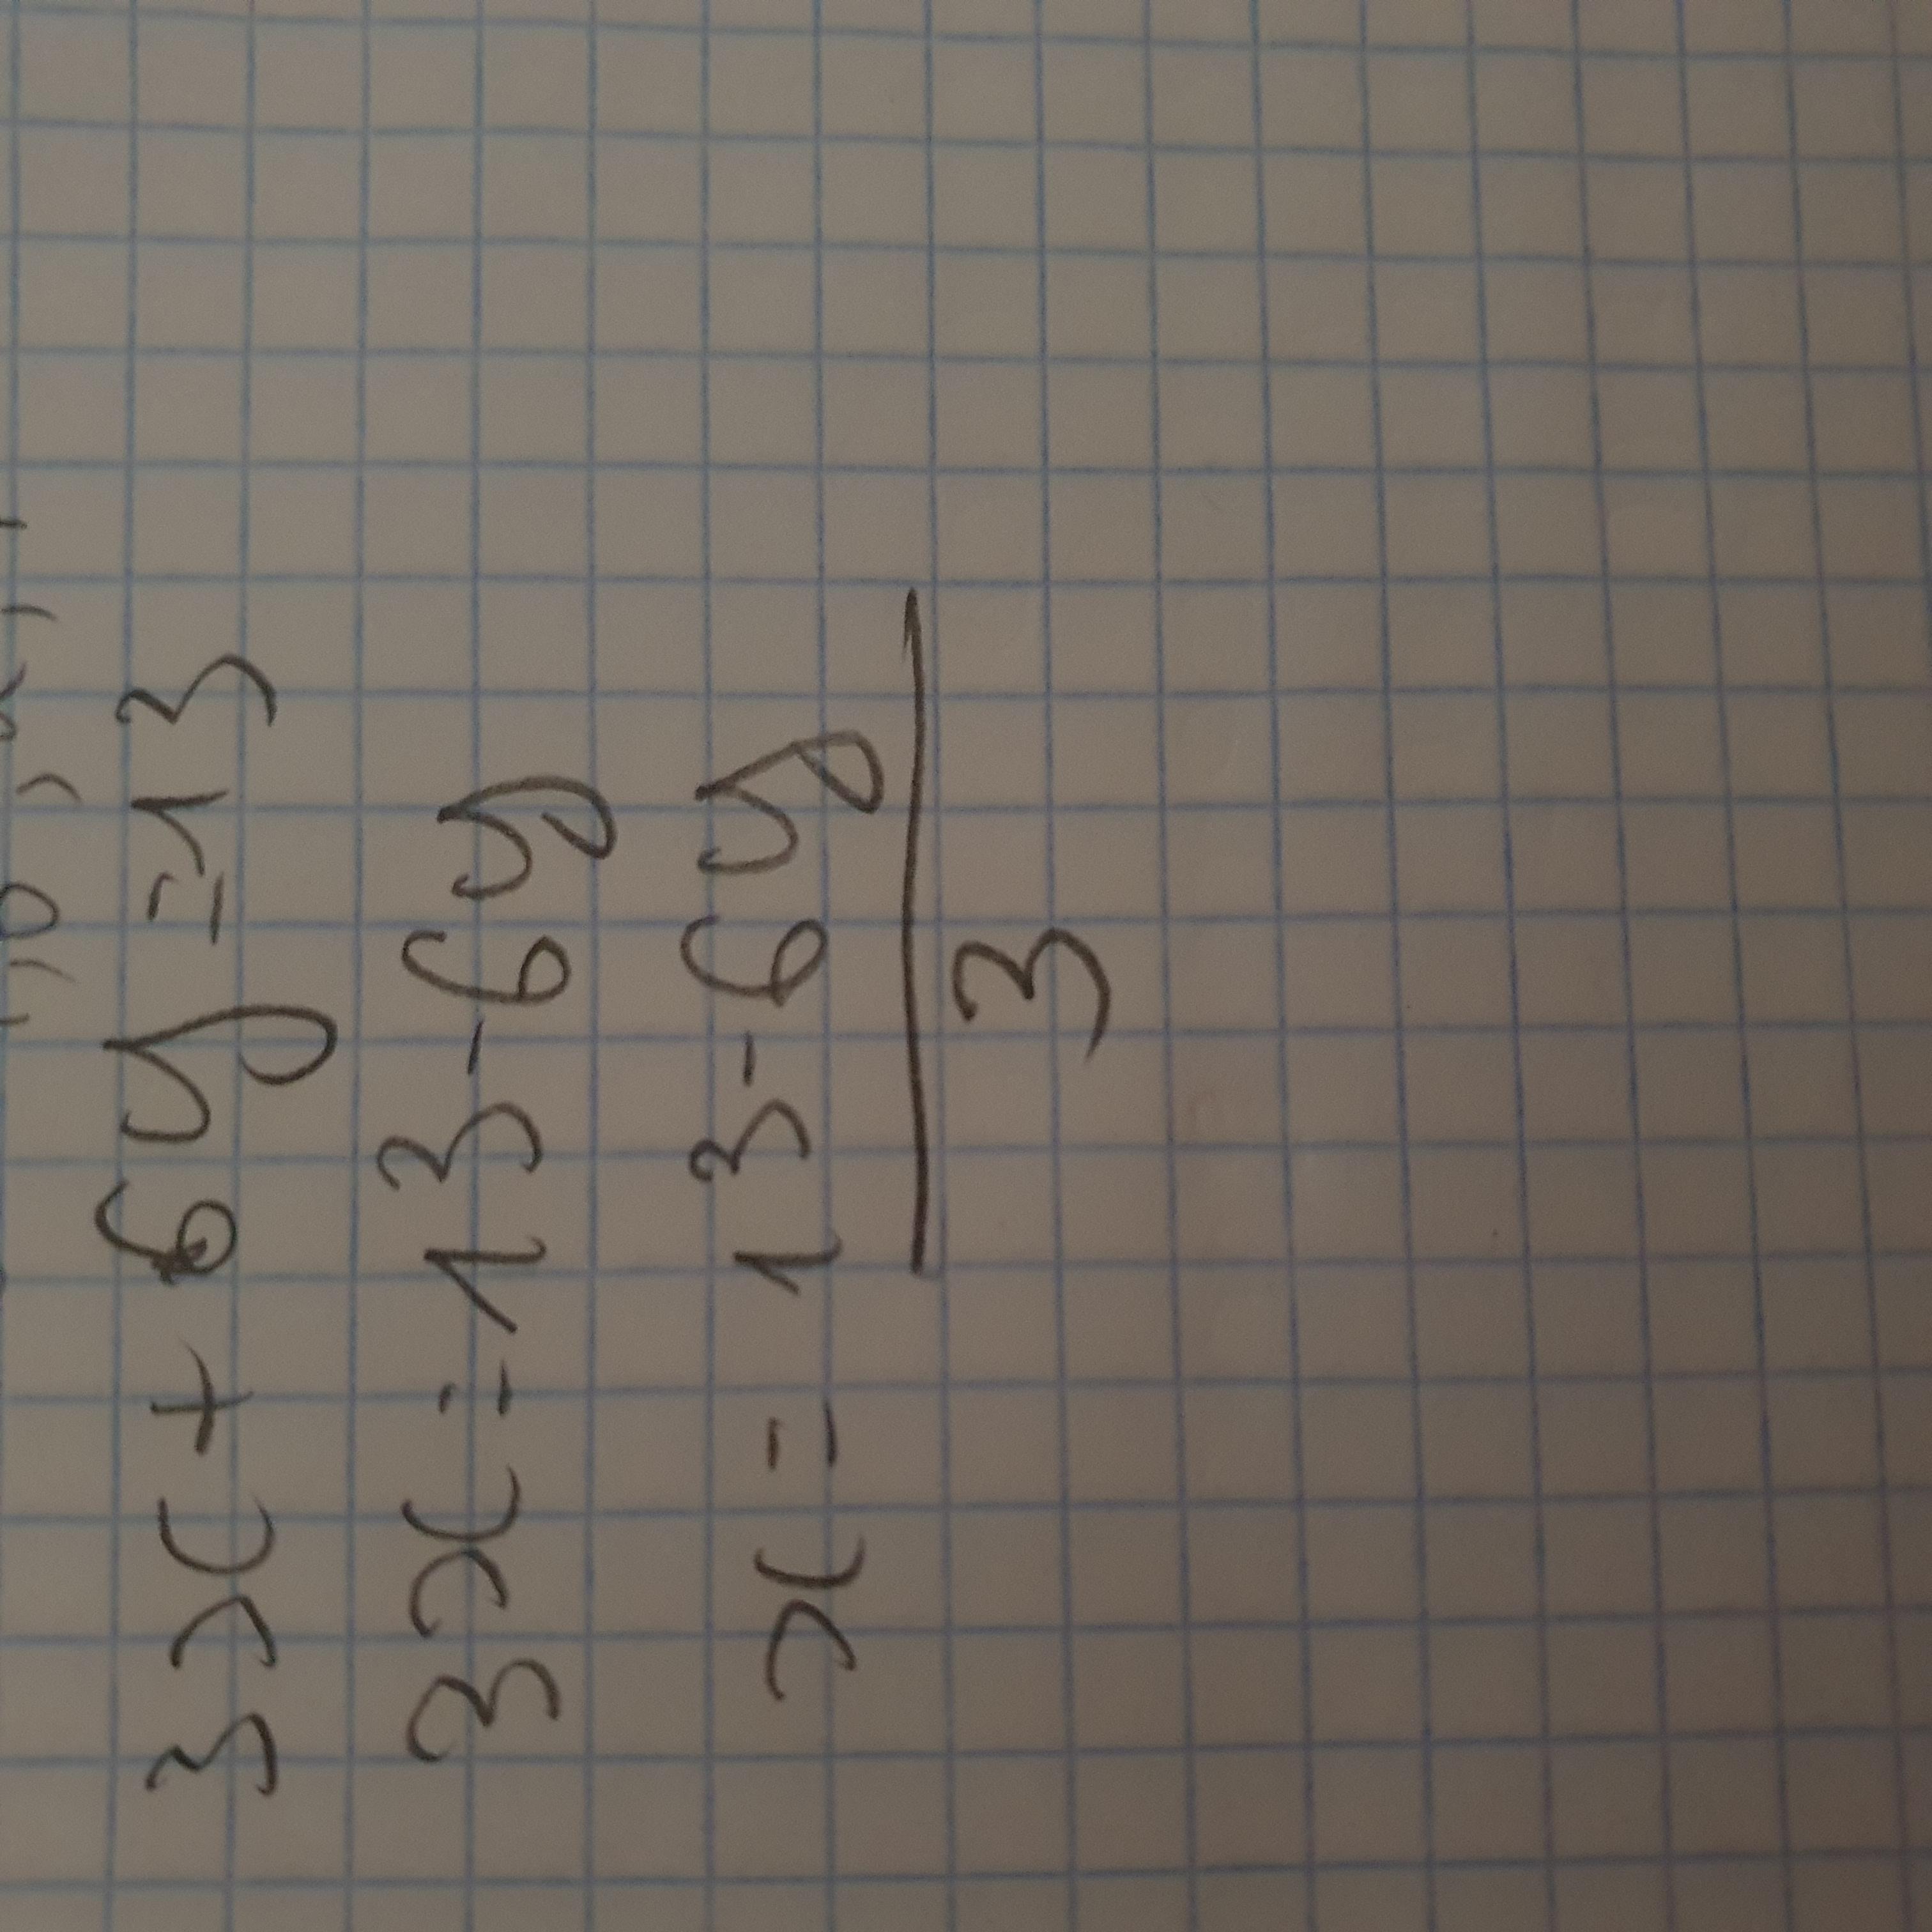 3x + 6y = 13
3x = 13 - 6y
x = 13 - 6y
3